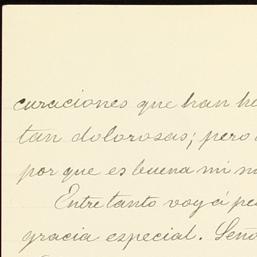 curaciones que han
tan dolorosas; pero
por que es buena mi
Entre tanto voy á
gracia especial.